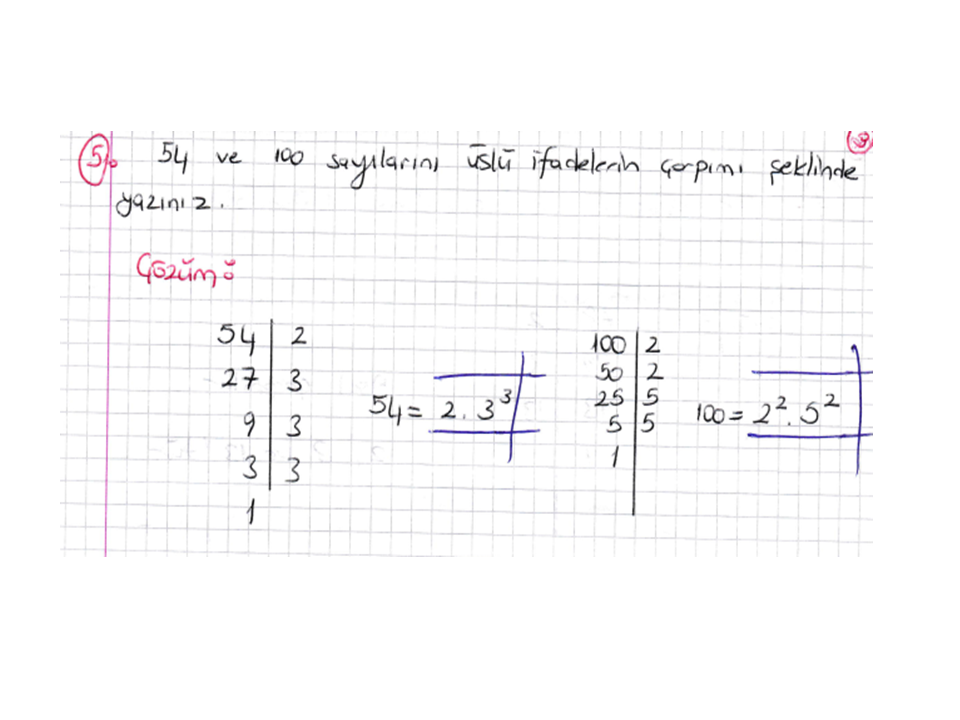 5. 54 ve 100 sayılarını üslü ifadelerin çarpımı şeklinde
yazınız.
Çözüm:
54 | 2
27 | 3
9 | 3
3 | 3
1
54 = 2 . 3³
100 | 2
50 | 2
25 | 5
5 | 5
1
100 = 2² . 5²